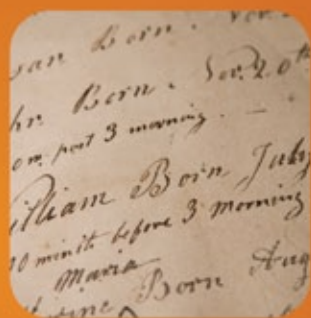 Born. Nov.
Born. Nov. 20th
past 3 morning.
William Born July
10 minits before 3 morning
Maria
Born Aug